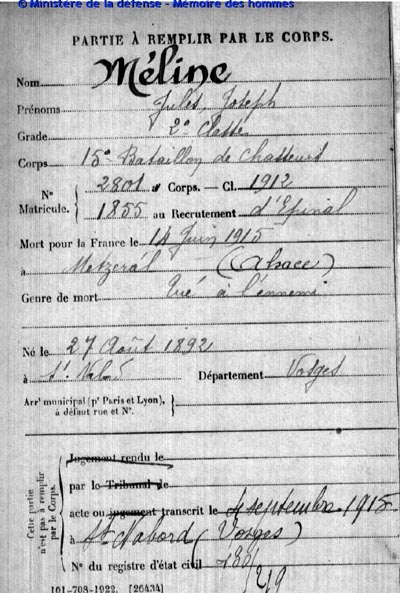 © Ministère de la défense - Mémoire des hommes
PARTIE À REMPLIR PAR LE CORPS.
Nom Méline
Prénoms Jules, Joseph
Grade 2e Classe
Corps 15e Bataillon de Chasseurs
N° Matricule. { 2801 au Corps. — Cl. 1912
1855 au Recrutement d'Epinal
Mort pour la France le 14 Juin 1915
à Metzeral (Alsace)
Genre de mort Tué à l'ennemi
Né le 27 Août 1892
à St Département Vosges
Arrt municipal (pr Paris et Lyon), à défaut rue et N°. }
Cette partie n'est pas à remplir par le Corps.
Jugement rendu le
par le Tribunal de
acte ou jugement transcrit le 4 septembre 1915
à St Nabord (Vosges)
N° du registre d'état civil
101-708-1922. [26434]